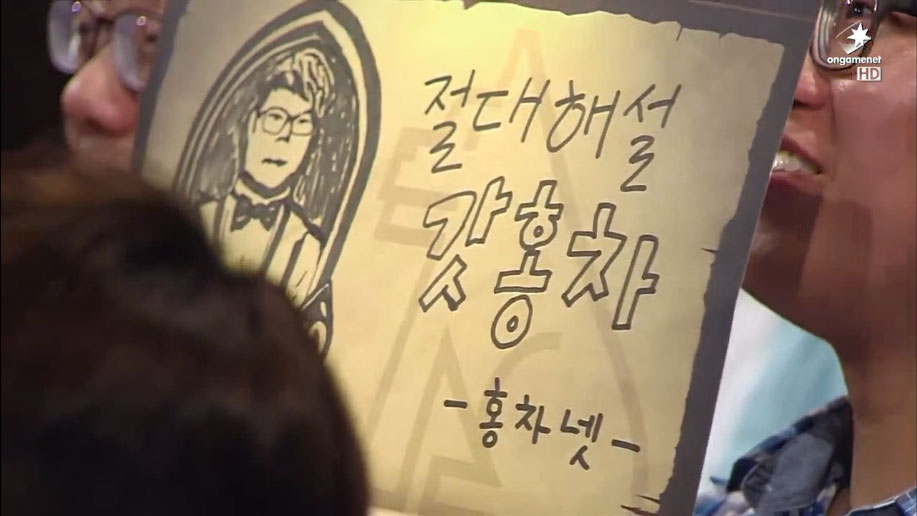 절대해설
갓홍차
-홍차넷-
ongamenet
HD